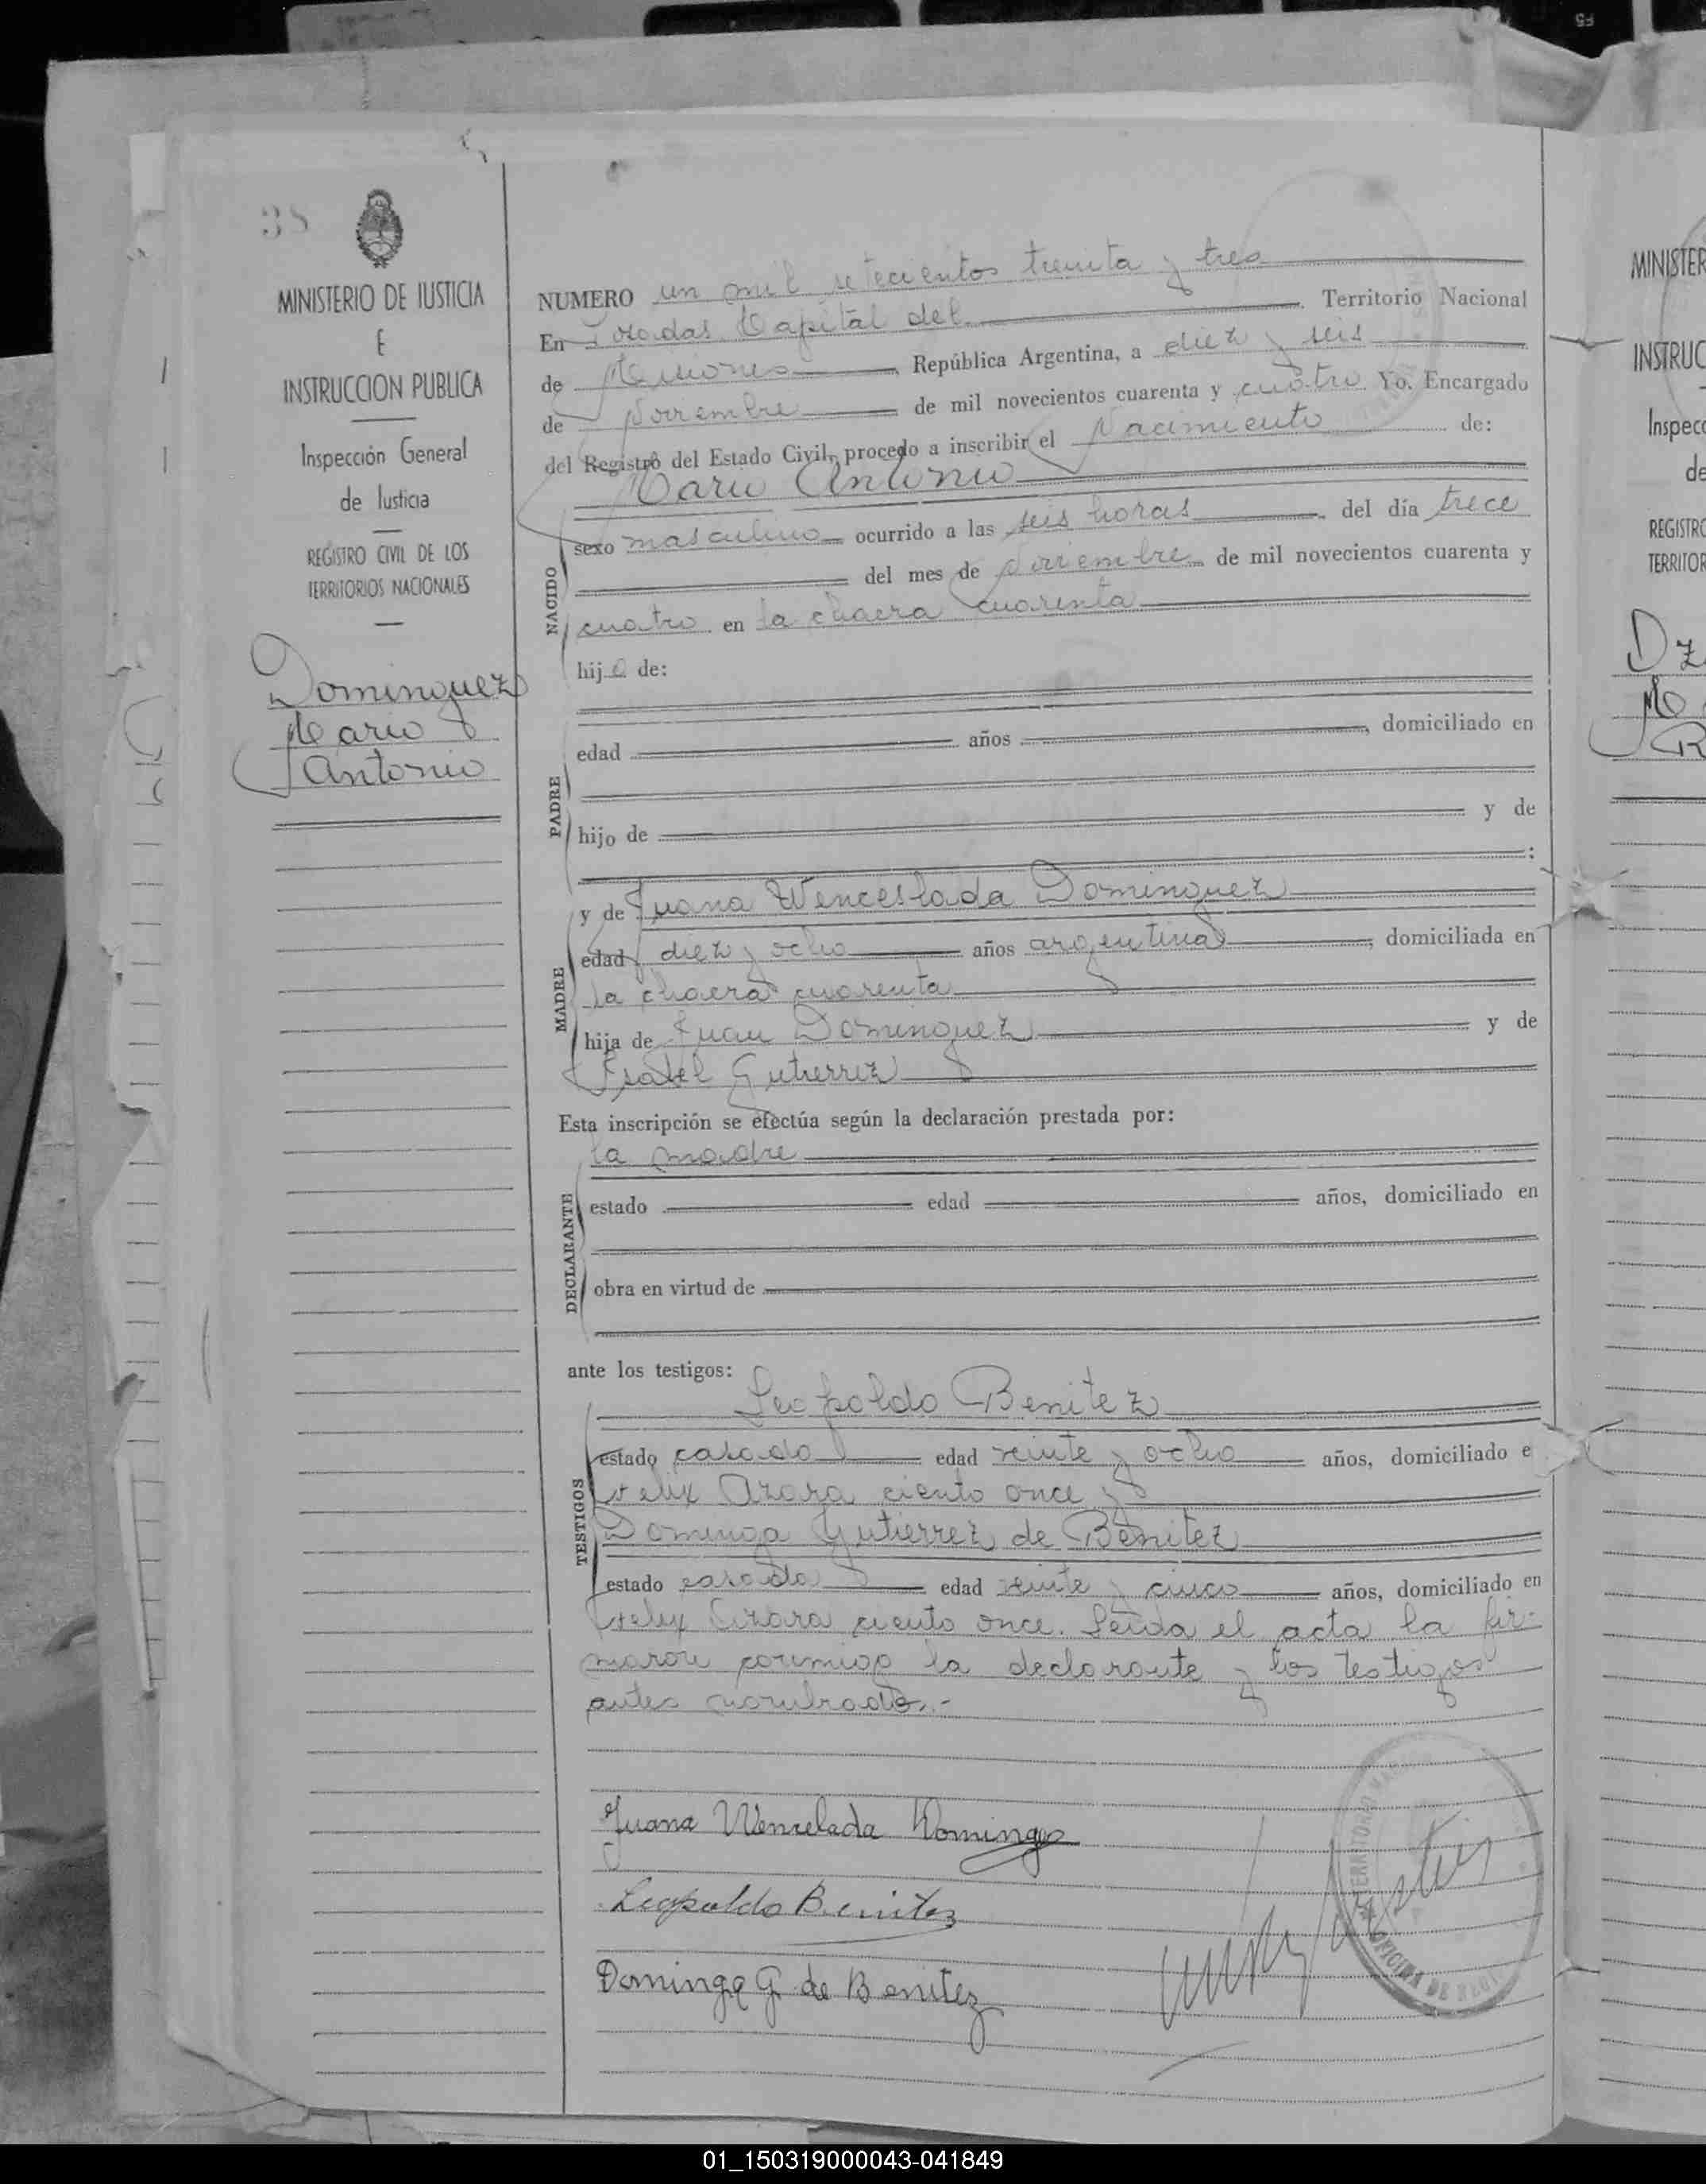 F5
38
MINISTERIO DE JUSTICIA
E
INSTRUCCION PUBLICA
Inspección General
de Justicia
REGISTRO CIVIL DE LOS
TERRITORIOS NACIONALES
Dominguez
Mario
Antonio
NUMERO un mil setecientos treinta y tres
En Posadas Capital del Territorio Nacional
de Misiones, República Argentina, a diez y seis
de Noviembre de mil novecientos cuarenta y cuatro Yo. Encargado
del Registro del Estado Civil, procedo a inscribir el Nacimiento de:
Mario Antonio
NACIDO
sexo masculino ocurrido a las seis horas del día trece
del mes de Noviembre de mil novecientos cuarenta y
cuatro en la chacra cuarenta
hijo de:
PADRE
edad años , domiciliado en
hijo de y de
:
MADRE
y de Juana Wenceslada Dominguez
edad diez y ocho años argentina, domiciliada en
la chacra cuarenta
hija de Juan Dominguez y de
Ysabel Gutierrez
Esta inscripción se efectúa según la declaración prestada por:
la madre
DECLARANTE
estado edad años, domiciliado en
obra en virtud de
ante los testigos:
Leopoldo Benitez
TESTIGOS
estado casado edad veinte y ocho años, domiciliado e
Felix Azara ciento once y
Dominga Gutierrez de Benitez
estado casada edad veinte y cinco años, domiciliado en
Felix Azara ciento once. Leida el acta la fir-
maron conmigo la declarante y los testigos
antes nombrados.-
Juana Wenselada Domingez
Leopoldo Benitez
Dominga G. de Benitez
TERRITORIO
OFICINA DE
MINISTER
INSTRUC
Inspecc
de
REGISTRO
TERRITOR
01_150319000043-041849